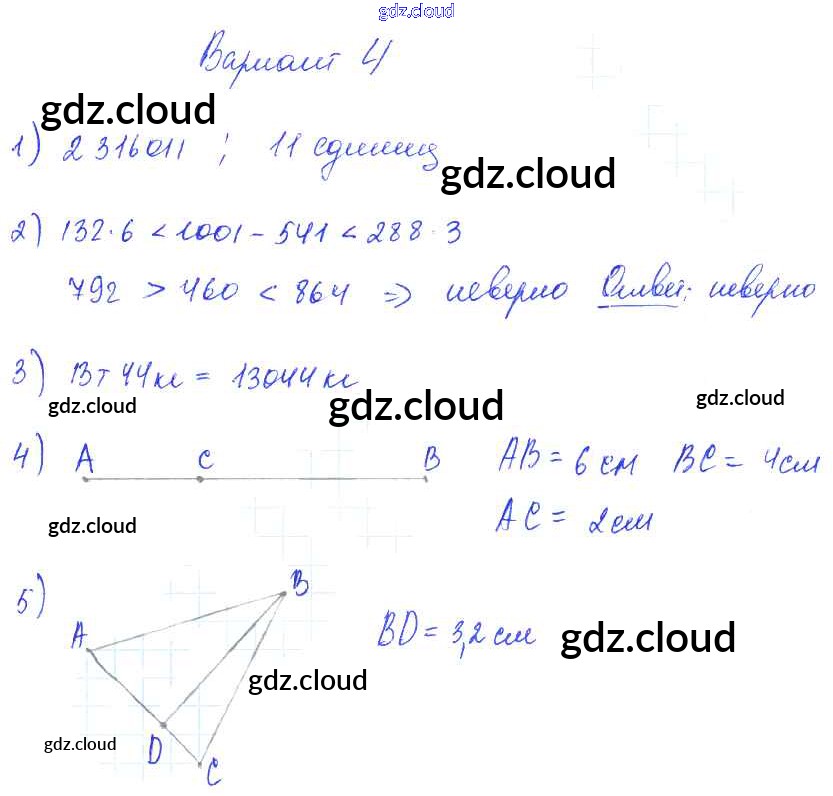 gdz.cloud
Вариант 4
gdz.cloud
1) 2 316 011 ; 11 единиц
gdz.cloud
2) 132·6 < 1001 – 541 < 288·3
792 > 460 < 864 => неверно Ответ: неверно
3) 13т 44кг = 13044кг
gdz.cloud gdz.cloud gdz.cloud
4) A C B AB = 6 см BC = 4см
gdz.cloud AC = 2см
5) B
A BD = 3,2 см gdz.cloud
gdz.cloud
gdz.cloud D C